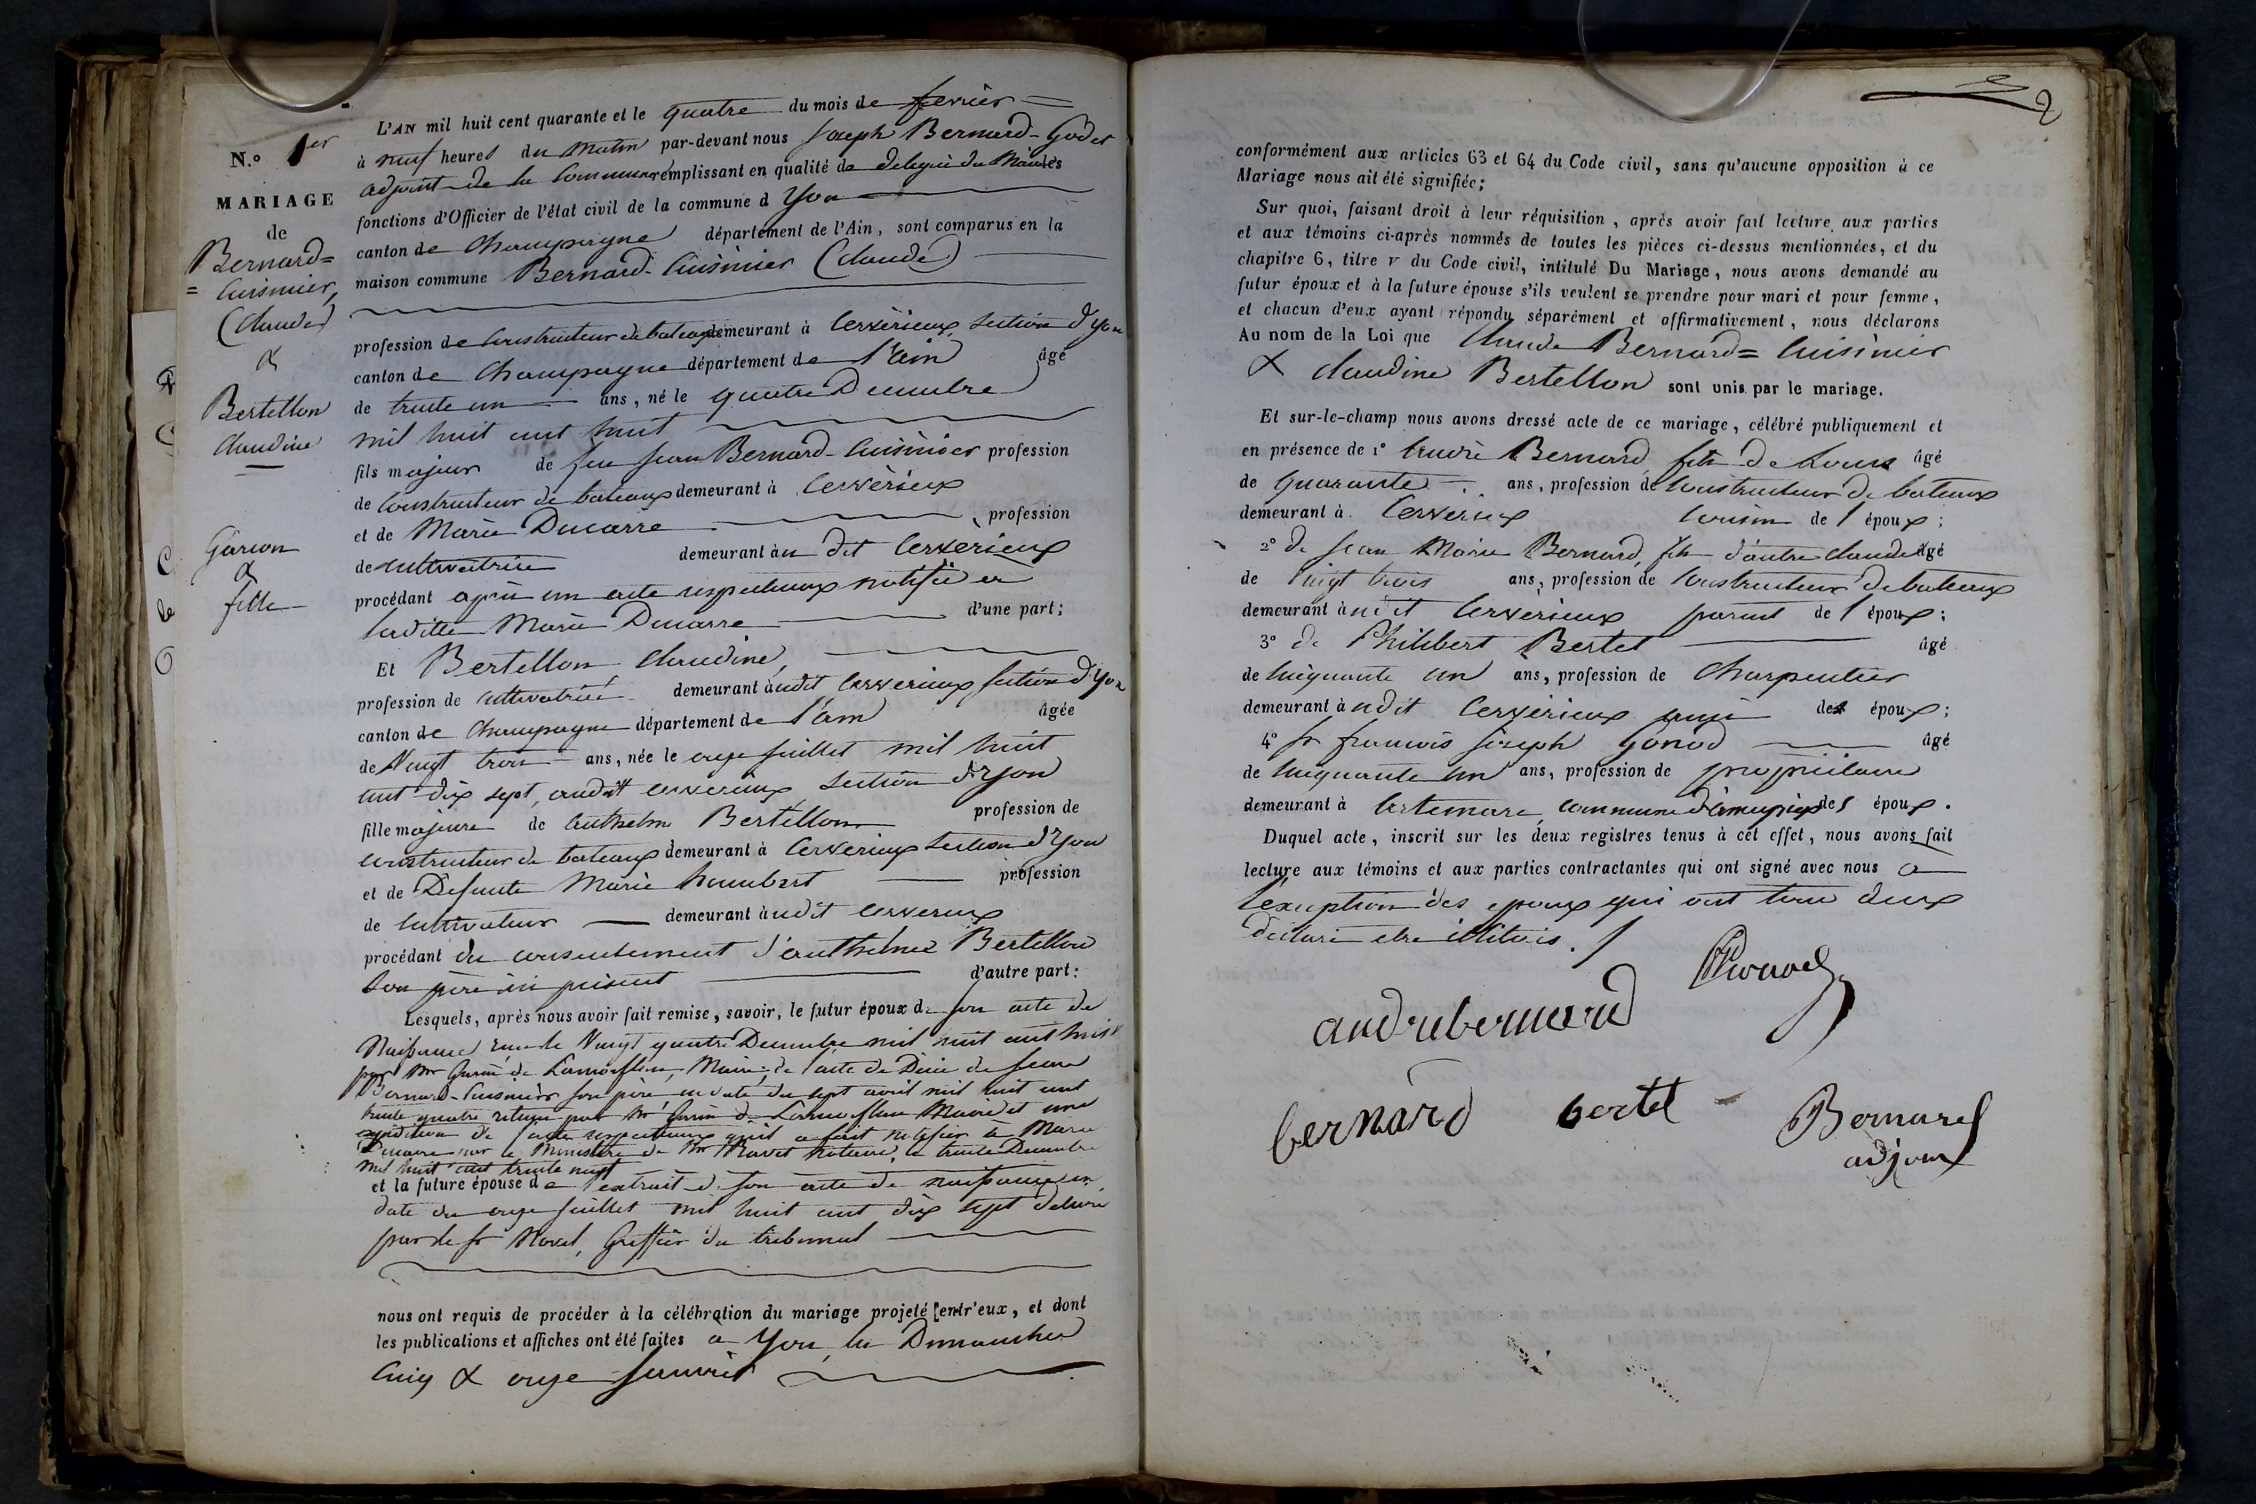 N.o 1er
MARIAGE
de
Bernard=
=Cuisinier,
(Claude)
&
Bertellon
Claudine
Garcon
&
fille
L'AN mil huit cent quarante et le quatre du mois de fevrier
à neuf heures du matin par-devant nous Joseph Bernard-Godet
adjoint de la Commune remplissant en qualité de délégué du Maire les
fonctions d'Officier de l'état civil de la commune d Yon
canton de Champagne département de l'Ain, sont comparus en la
maison commune Bernard-Cuisinier (Claude)
profession de Constructeur de bateaux demeurant à Cerverieux, Section d'yon
canton de Champagne département de l'ain âgé
de trente un ans, né le quatre Decembre
mil huit cent huit
fils majeur de feu Jean Bernard-Cuisinier profession
de Constructeur de bateaux demeurant à Cerverieux
et de Marie Ducarre profession
de cultivatrice demeurant au dit Cerverieux
procédant après un acte respectueux notifié à
ladite Marie Ducarre d'une part;
Et Bertellon Claudine,
profession de cultivatrice demeurant audit Cerverieux section d'Yon
canton de Champagne département de l'ain âgée
de Vingt trois ans, née le onze juillet mil huit
cent dix sept, audit cerverieux, section d'Yon
fille majeure de Anthelme Bertellon profession de
constructeur de bateaux demeurant à Cerverieux Section d'Yon
et de Defunte Marie humbert profession
de Cultivateur demeurant audit cerverieux
procédant du consentement d'anthelme Bertellon
Son père ici présent d'autre part:
Lesquels, après nous avoir fait remise, savoir, le futur époux de son acte de
Naissance reçu le Vingt quatre Decembre mil huit cent huit
par Mr Garin de Lamorflan, Maire, de l'acte de Décè de Jean
Bernard-Cuisinier son père en date du sept avril mil huit cent
trente quatre retenu par Mr Garin de Lamorflan Maire et une
expédition de l'acte respectueux qu'il a fait notifier à Marie
Ducarre par le Ministère de Mr Ravet Notaire, le trente Decembre
mil huit cent trente neuf
et la future épouse de l'extrait de son acte de naissance en
date du onze juillet mil huit cent dix sept délivré
par le sr Morel, Greffier du tribunal
nous ont requis de procéder à la célébration du mariage projeté entr'eux, et dont
les publications et affiches ont été faites à Yon, les Dimanches
Cinq & onze janvier
2
conformément aux articles 63 et 64 du Code civil, sans qu'aucune opposition à ce
Mariage nous ait été signifiée;
Sur quoi, faisant droit à leur réquisition, après avoir fait lecture aux parties
et aux témoins ci-après nommés de toutes les pièces ci-dessus mentionnées, et du
chapitre 6, titre v du Code civil, intitulé Du Mariage, nous avons demandé au
futur époux et à la future épouse s'ils veulent se prendre pour mari et pour femme,
et chacun d'eux ayant répondu séparément et affirmativement, nous déclarons
Au nom de la Loi que Claude Bernard=Cuisinier
& Claudine Bertellon sont unis par le mariage.
Et sur-le-champ nous avons dressé acte de ce mariage, célébré publiquement et
en présence de 1° André Bernard, fils de Louis âgé
de quarante ans, profession de Constructeur de bateaux
demeurant à Cerverieux Cousin de l'époux;
2° de Jean Marie Bernard, fils d'autre claude âgé
de Vingt trois ans, profession de Constructeur de bateaux
demeurant audit Cerverieux parent de l'époux;
3° de Philibert Bertet âgé
de Cinquante un ans, profession de Charpentier
demeurant audit Cerverieux ami des époux;
4° sr francois joseph Gonod âgé
de Cinquante un ans, profession de propriétaire
demeurant à Artemare, commune d'ameyzieu des époux.
Duquel acte, inscrit sur les deux registres tenus à cet effet, nous avons fait
lecture aux témoins et aux parties contractantes qui ont signé avec nous à
l'exception des epoux qui ont tous deux
déclaré etre illitérés.
Gonod
andrebernard
bernard bertet Bernard
adjoint